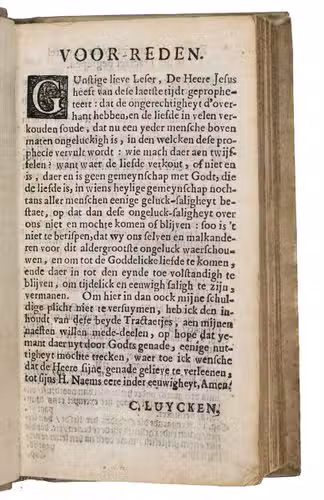 VOOR-REDEN.
GUnstige lieve Leser, De Heere Jesus
heeft van dese laetste tijdt geprophe-
teert: dat de ongerechtigheyt d'over-
hant hebben, en de liefde in velen ver-
kouden soude, dat nu een yeder mensche boven
maten ongeluckigh is, in den welcken dese pro-
phecie vervult wordt: wie mach daer aen twijf-
felen? want waer de liefde verkout, of niet en
is, daer en is geen gemeynschap met Godt, die
de liefde is, in wiens heylige gemeynschap noch-
tans aller menschen eenige geluck-saligheyt be-
staet, op dat dan dese ongeluck-saligheyt over
ons niet en mochte komen of blijven: soo is 't
niet te berispen, dat wy ons selven en malkande-
ren voor dit aldergrootste ongeluck waerschou-
wen, en om tot de Goddelicke liefde te komen,
ende daer in tot den eynde toe volstandigh te
blijven, om tijdelick en eeuwigh saligh te zijn,
vermanen. Om hier in dan oock mijne schul-
dige plicht niet te versuymen, heb ick den in-
houdt van dese beyde Tractaetjes, aen mijnen
naesten willen mede-deelen, op hope dat ye-
mant daer uyt door Godts genade, eenige nut-
tigheyt mochte trecken, waer toe ick wensche
dat de Heere sijne genade gelieve te verleenen,
tot sijns H. Naems eere in der eeuwigheyt, Amen!
C. LUYCKEN,